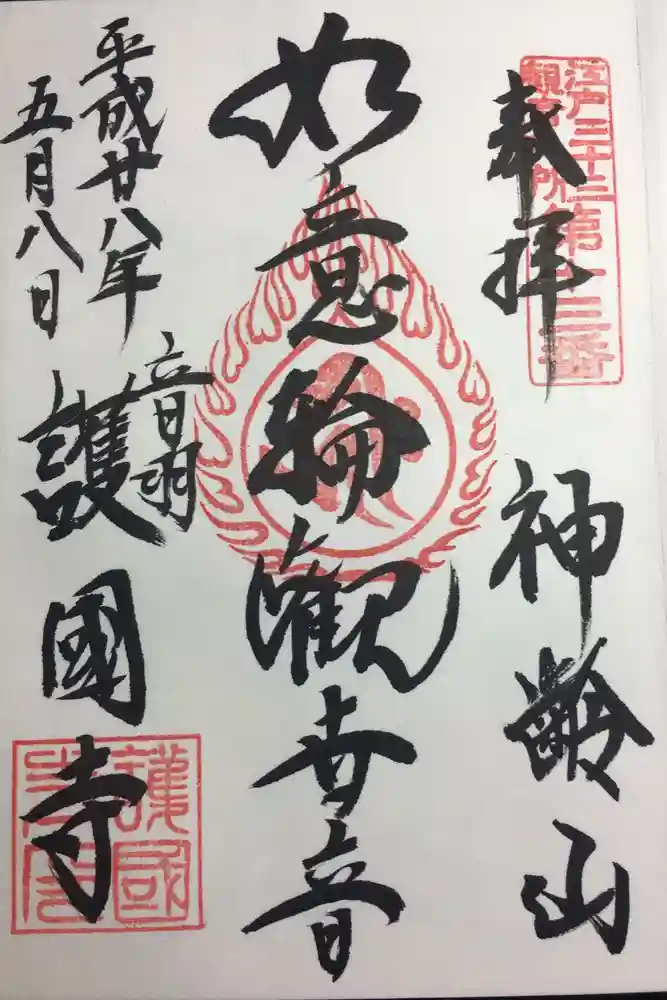 江戸三十三
観音札所
第十三番
奉拝
神齢山
如意輪觀世音
平成廿八年
五月八日
音羽
護國寺
護國